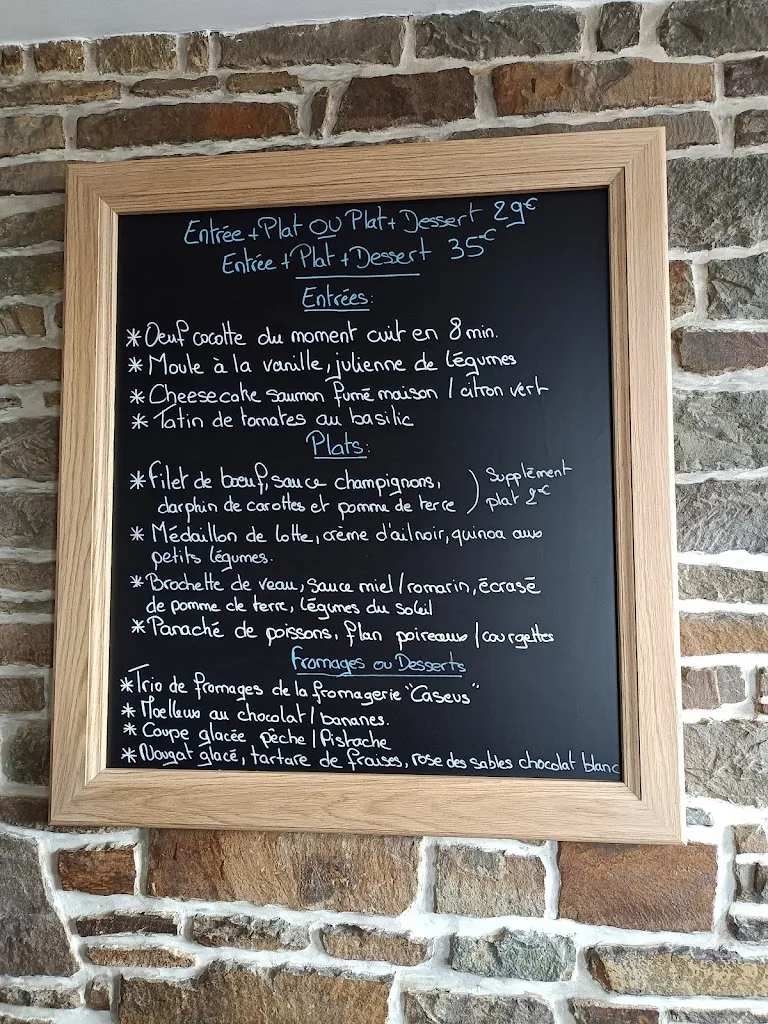 Entrée + Plat OU Plat + Dessert 29€
Entrée + Plat + Dessert 35€
Entrées:
* Oeuf cocotte du moment cuit en 8 min.
* Moule à la vanille, julienne de légumes
* Cheesecake saumon fumé maison / citron vert
* Tatin de tomates au basilic
Plats:
* Filet de bœuf, sauce champignons,
darphin de carottes et pomme de terre
) Supplément
plat 2€
* Médaillon de lotte, crème d'ail noir, quinoa aux
petits légumes.
* Brochette de veau, sauce miel / romarin, écrasé
de pomme de terre, légumes du soleil
* Panaché de poissons, flan poireaux / courgettes
Fromages ou Desserts
* Trio de fromages de la fromagerie "Caseus"
* Moelleux au chocolat / bananes.
* Coupe glacée pêche / Pistache
* Nougat glacé, tartare de fraises, rose des sables chocolat blanc